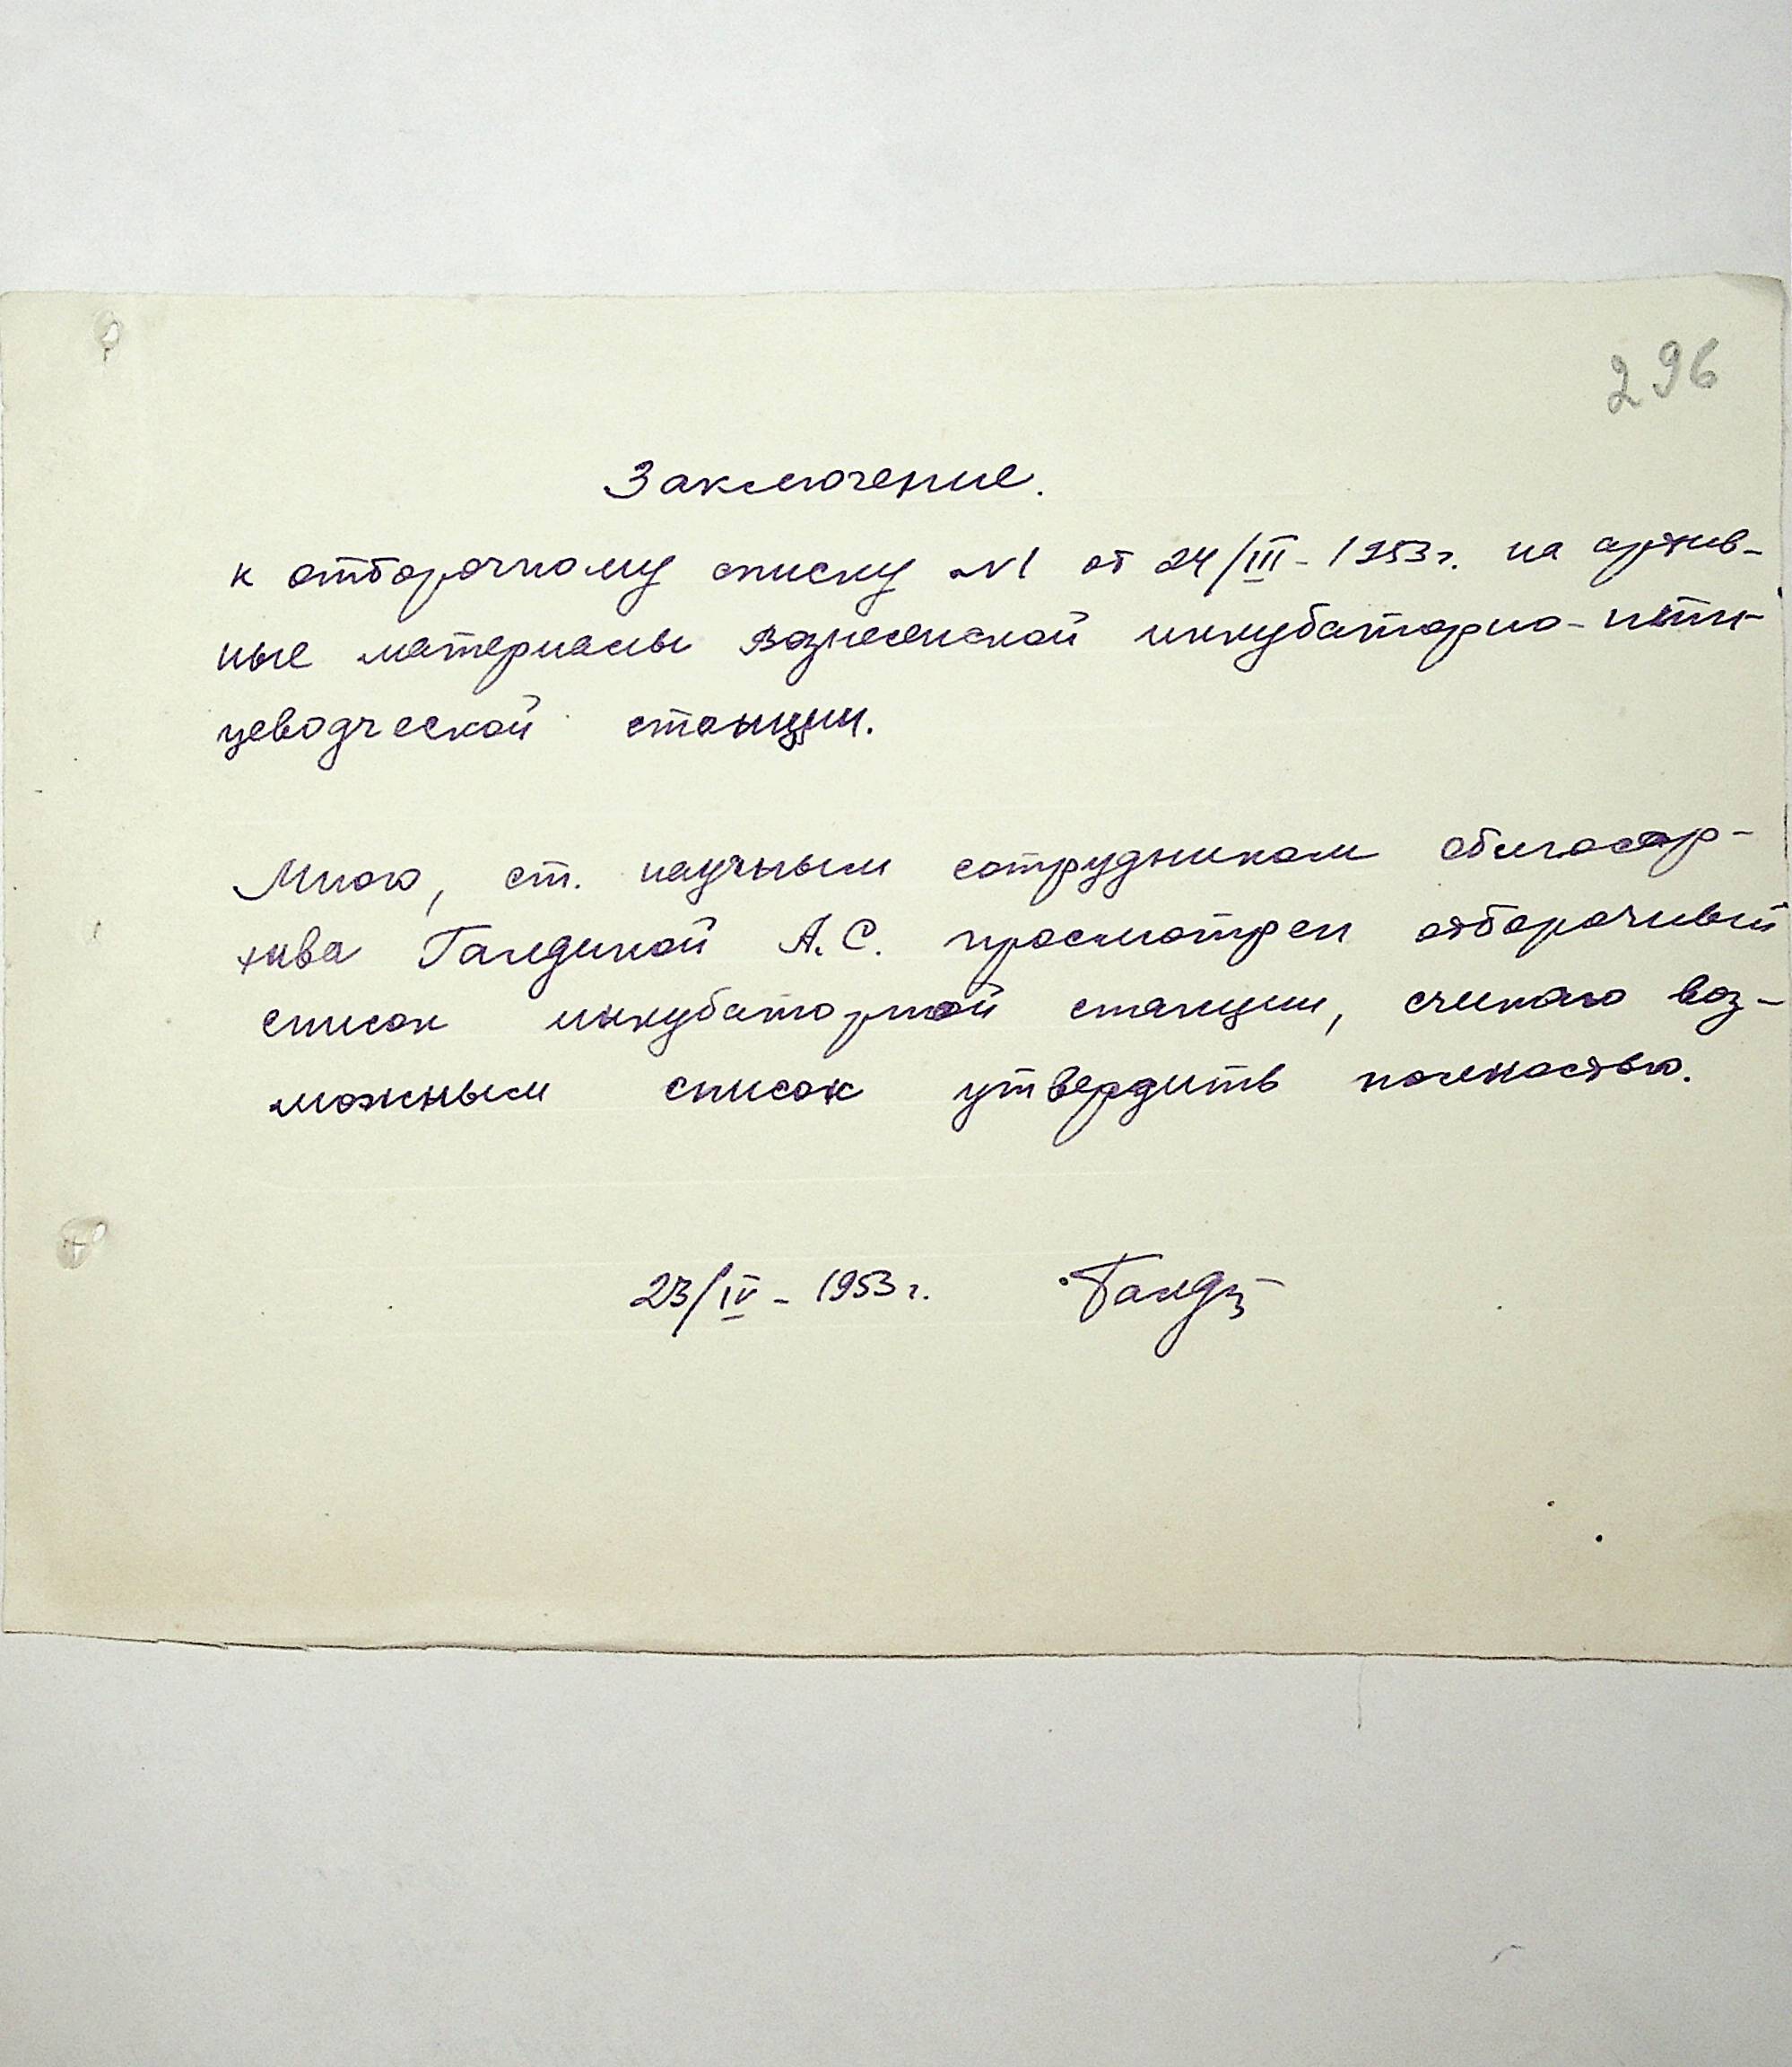 296
Заключение.
к отборочному списку №1 от 24/III-1953г. на архив-
ные материалы Вознесенской инкубаторно-пти-
цеводческой станции.
Мною, ст. научным сотрудником облгосар-
хива Галдиной А.С. просмотрен отборочный
список инкубаторной станции, считаю воз-
можным список утвердить полностью.
23/IV-1953г. Галд